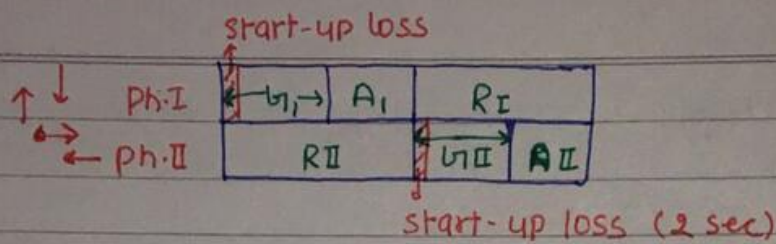 start-up loss
Ph.I G₁ A₁ RI
Ph.II RII GII AII
start-up loss (2 sec)